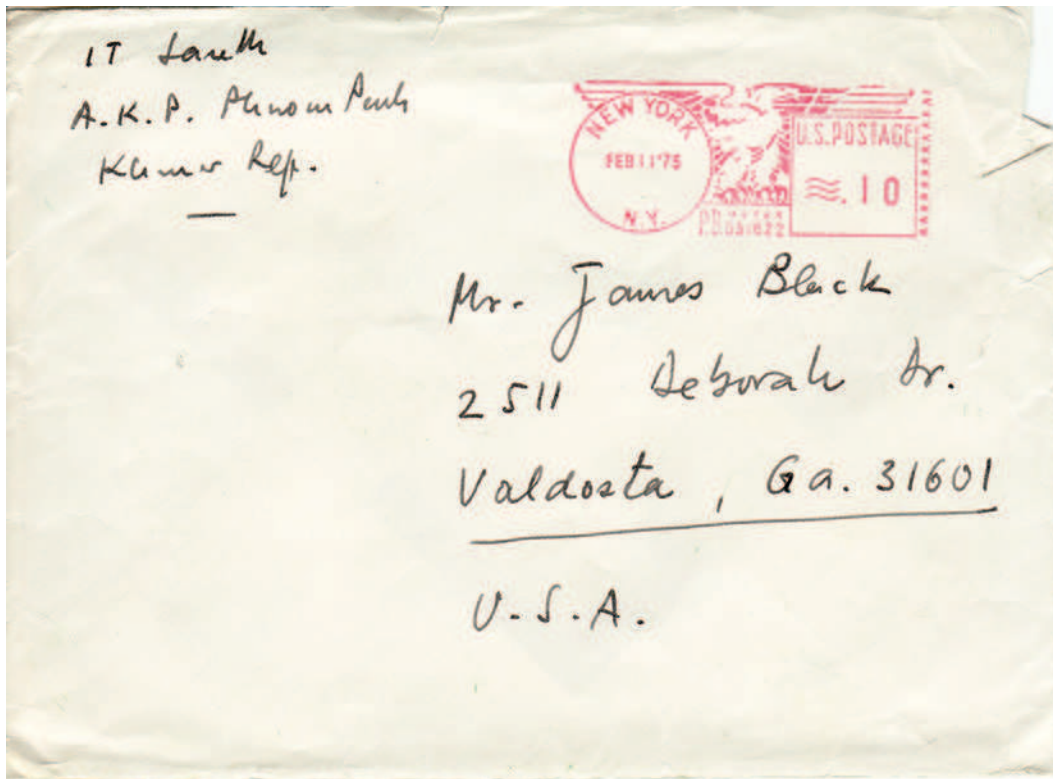 IT Sareth
A.K.P. Phnom Penh
Khmer Rep.
NEW YORK
FEB 11 '75
N.Y.
U.S. POSTAGE
.10
P.B. METER
Mr. James Black
2511 Deborah Dr.
Valdosta, Ga. 31601
U.S.A.